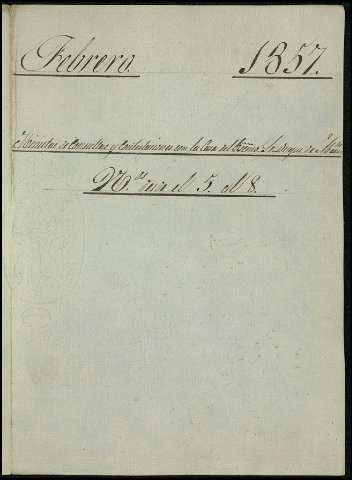 Febrero. 1857.
Minutas de Consultas y Contestaciones con la Casa del Exmo. Sr. Duque de
N.os desde el 5. al 8.